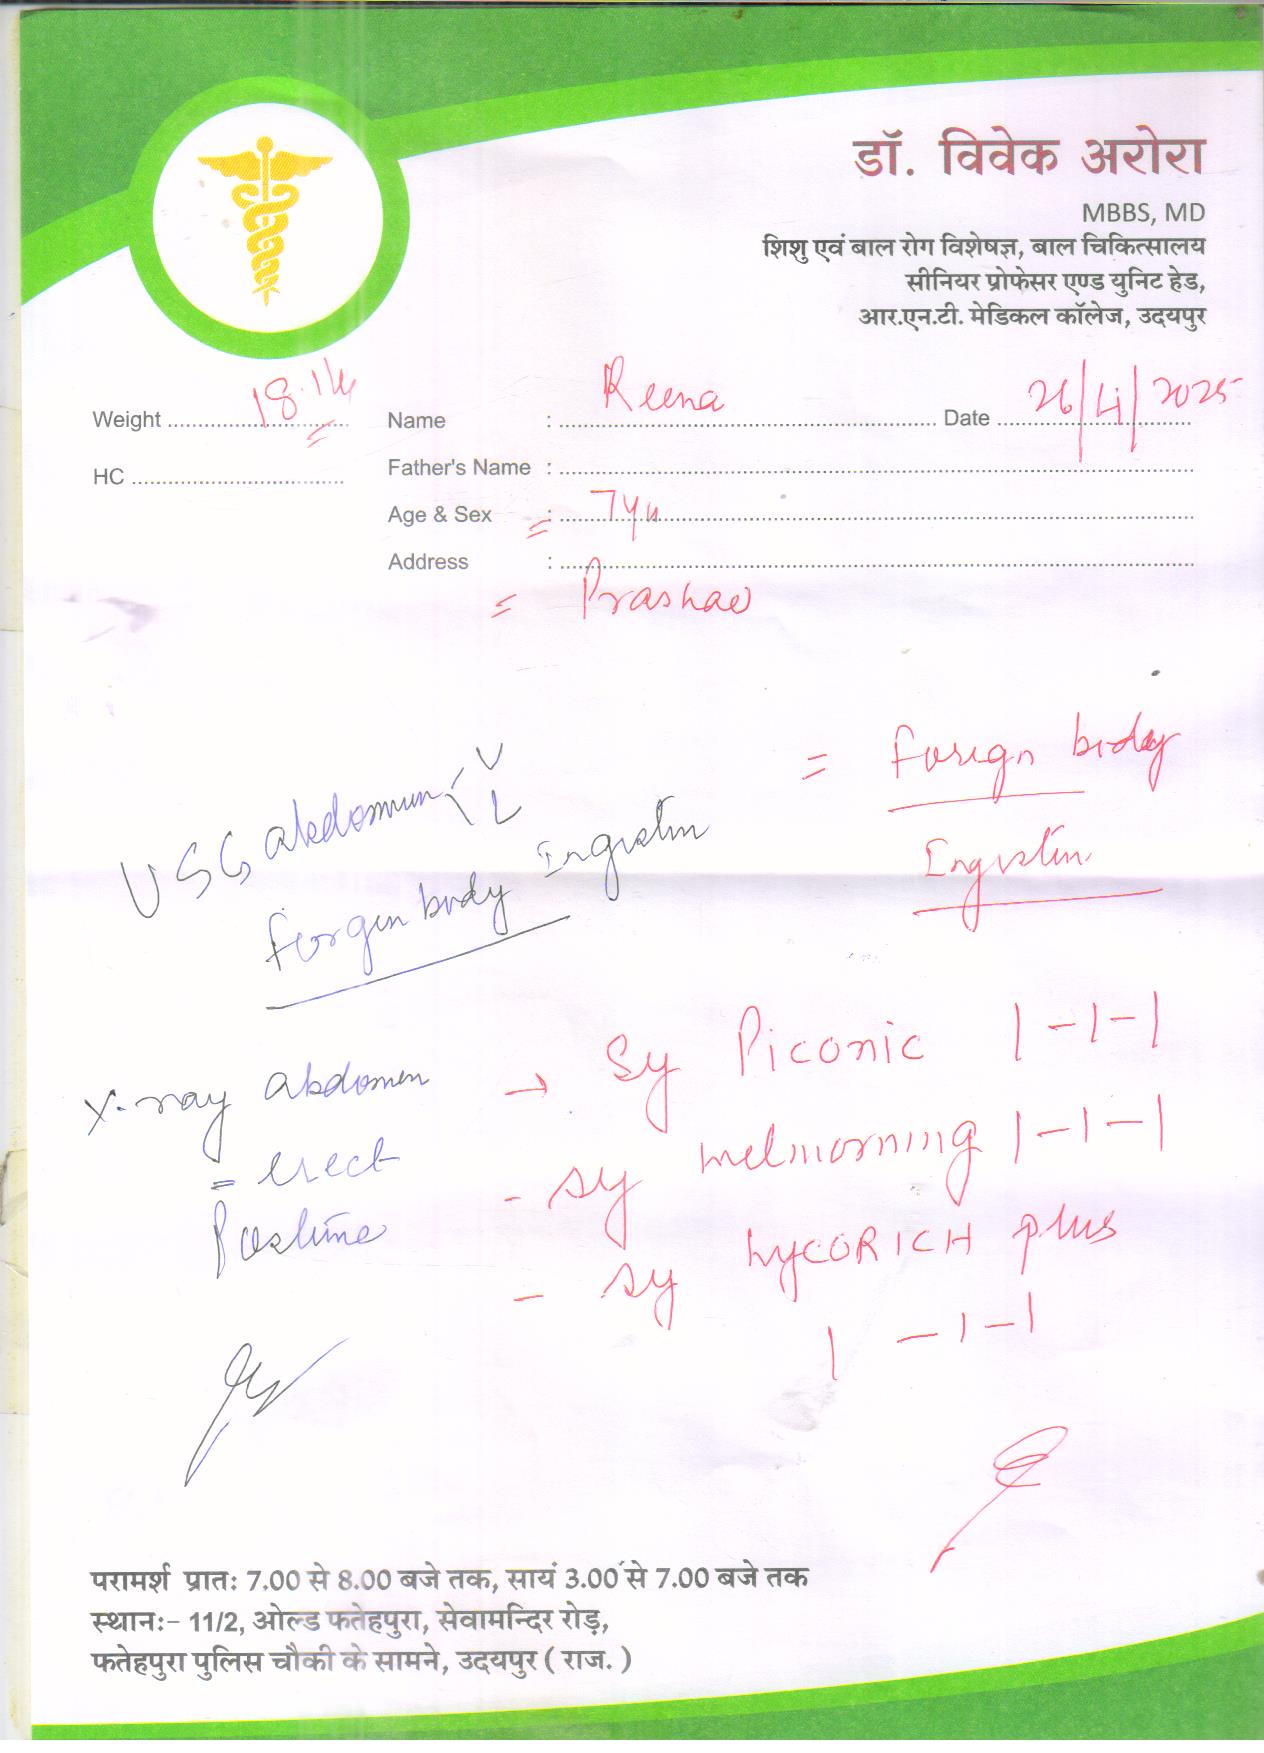 डॉ. विवेक अरोरा
MBBS, MD
शिशु एवं बाल रोग विशेषज्ञ, बाल चिकित्सालय
सीनियर प्रोफेसर एण्ड युनिट हेड,
आर.एन.टी. मेडिकल कॉलेज, उदयपुर
Weight 18.1
Name : Reena
Date 26/4/2025
HC
Father's Name :
Age & Sex : 7yr
Address :
= foreign body
Ingestin
USG abdomen
U
L
forgen body Ingestin
X-ray abdomen
= erect
→ Sy Piconic 1-1-1
- sy melmorning 1-1-1
- sy LycoRICH plus
1-1-1
परामर्श प्रातः 7.00 से 8.00 बजे तक, सायं 3.00 से 7.00 बजे तक
स्थानः- 11/2, ओल्ड फतेहपुरा, सेवामन्दिर रोड़,
फतेहपुरा पुलिस चौकी के सामने, उदयपुर ( राज. )